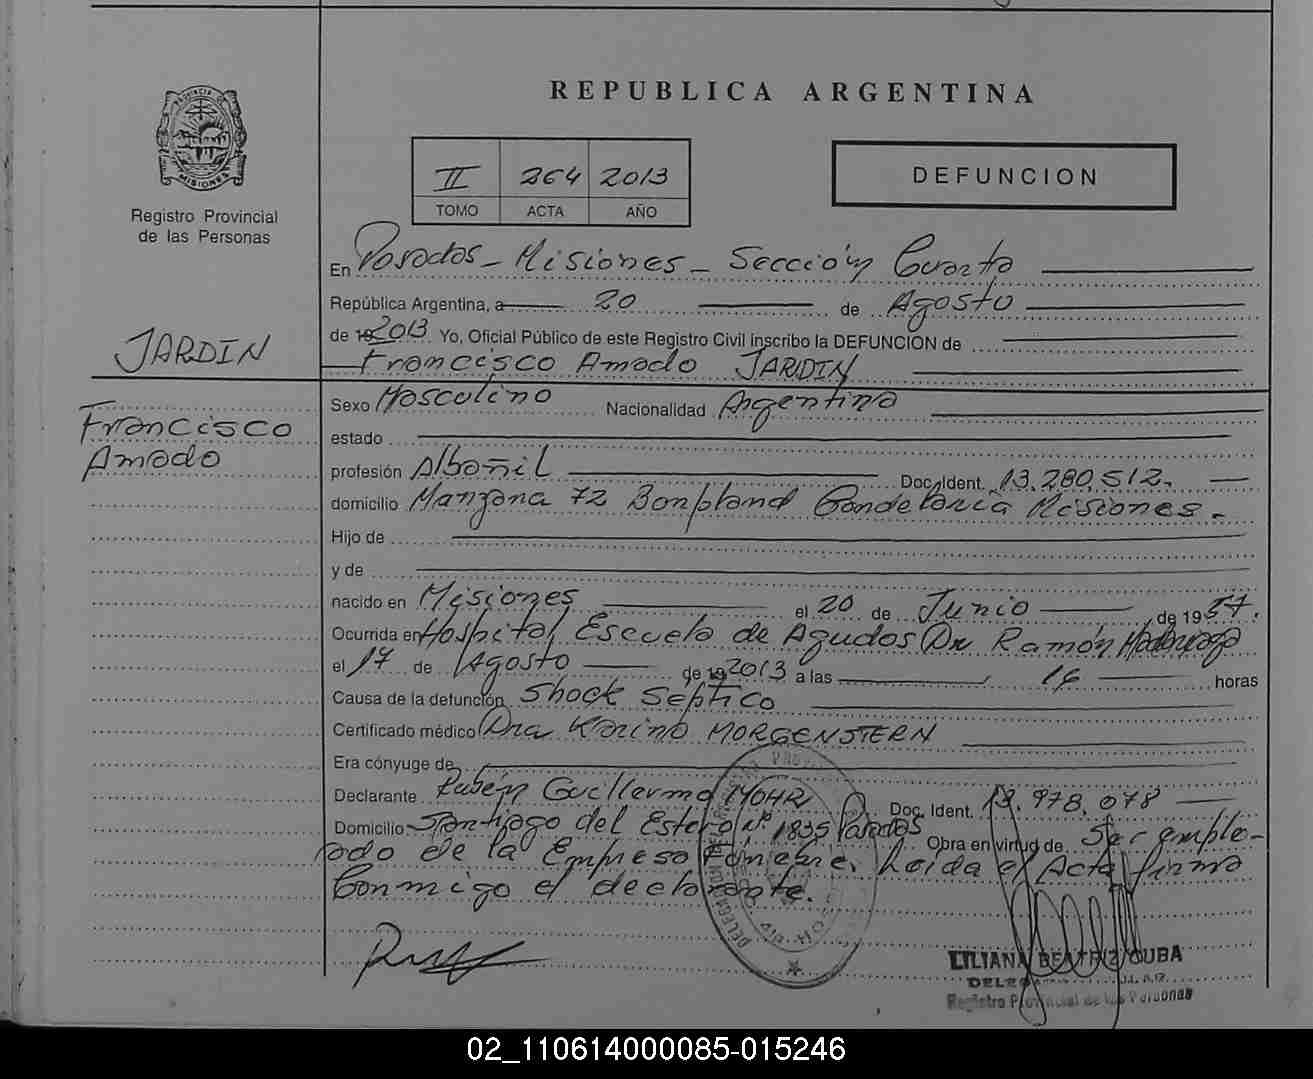 REPUBLICA ARGENTINA
PROVINCIA DE
MISIONES
Registro Provincial
de las Personas
II 264 2013
TOMO ACTA AÑO
DEFUNCION
JARDIN
Francisco
Amado
En Posadas - Misiones - Sección Cuarta
República Argentina, a 20 de Agosto
de 19 2013. Yo, Oficial Público de este Registro Civil inscribo la DEFUNCION de
Francisco Amado JARDIN
Sexo Masculino Nacionalidad Argentina
estado
profesión Albañil Doc. Ident. 13.280.512.
domicilio Manzana 72 Bonpland Candelaria Misiones.
Hijo de
y de
nacido en Misiones el 20 de Junio de 1957.
Ocurrida en Hospital Escuela de Agudos Dr. Ramón Madariaga
el 17 de Agosto de 19 2013 a las 16 horas
Causa de la defunción Shock Septico
Certificado médico Dra Karina MORGENSTERN
Era cónyuge de
Declarante Rubén Guillermo MOHR Doc. Ident. 13.978.078
Domicilio Santiago del Estero Nº 1835 Posadas Obra en virtud de Ser emple-
ado de la Empresa Fúnebre. Leída el Acta firma
Conmigo el declarante.
LILIANA BEATRIZ CUBA
Registro Provincial de las Personas
02_110614000085-015246